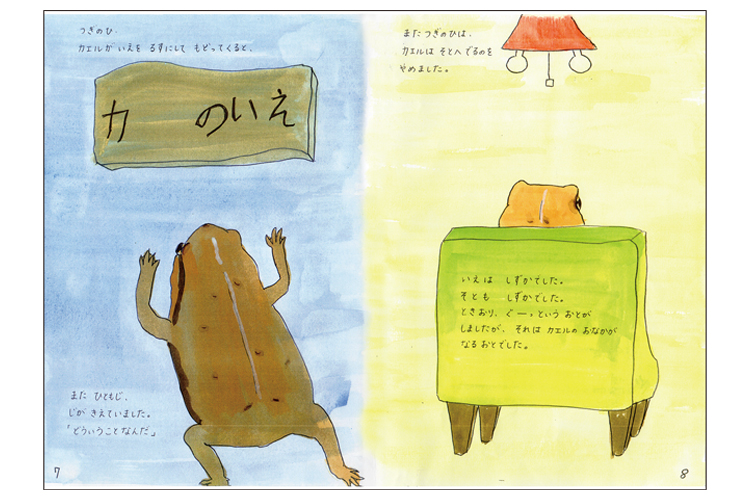 つぎのひ、
カエルが いえを るすにして もどってくると、
カ　　のいえ
また ひともじ、
じが きえていました。
「どういうことなんだ」
7
またつぎのひは、
カエルは そとへ でるのを
やめました。
いえは　しずかでした。
そとも　しずかでした。
ときおり、ぐー、という おとが
しましたが、それは カエルの おなかが
なる おとでした。
8